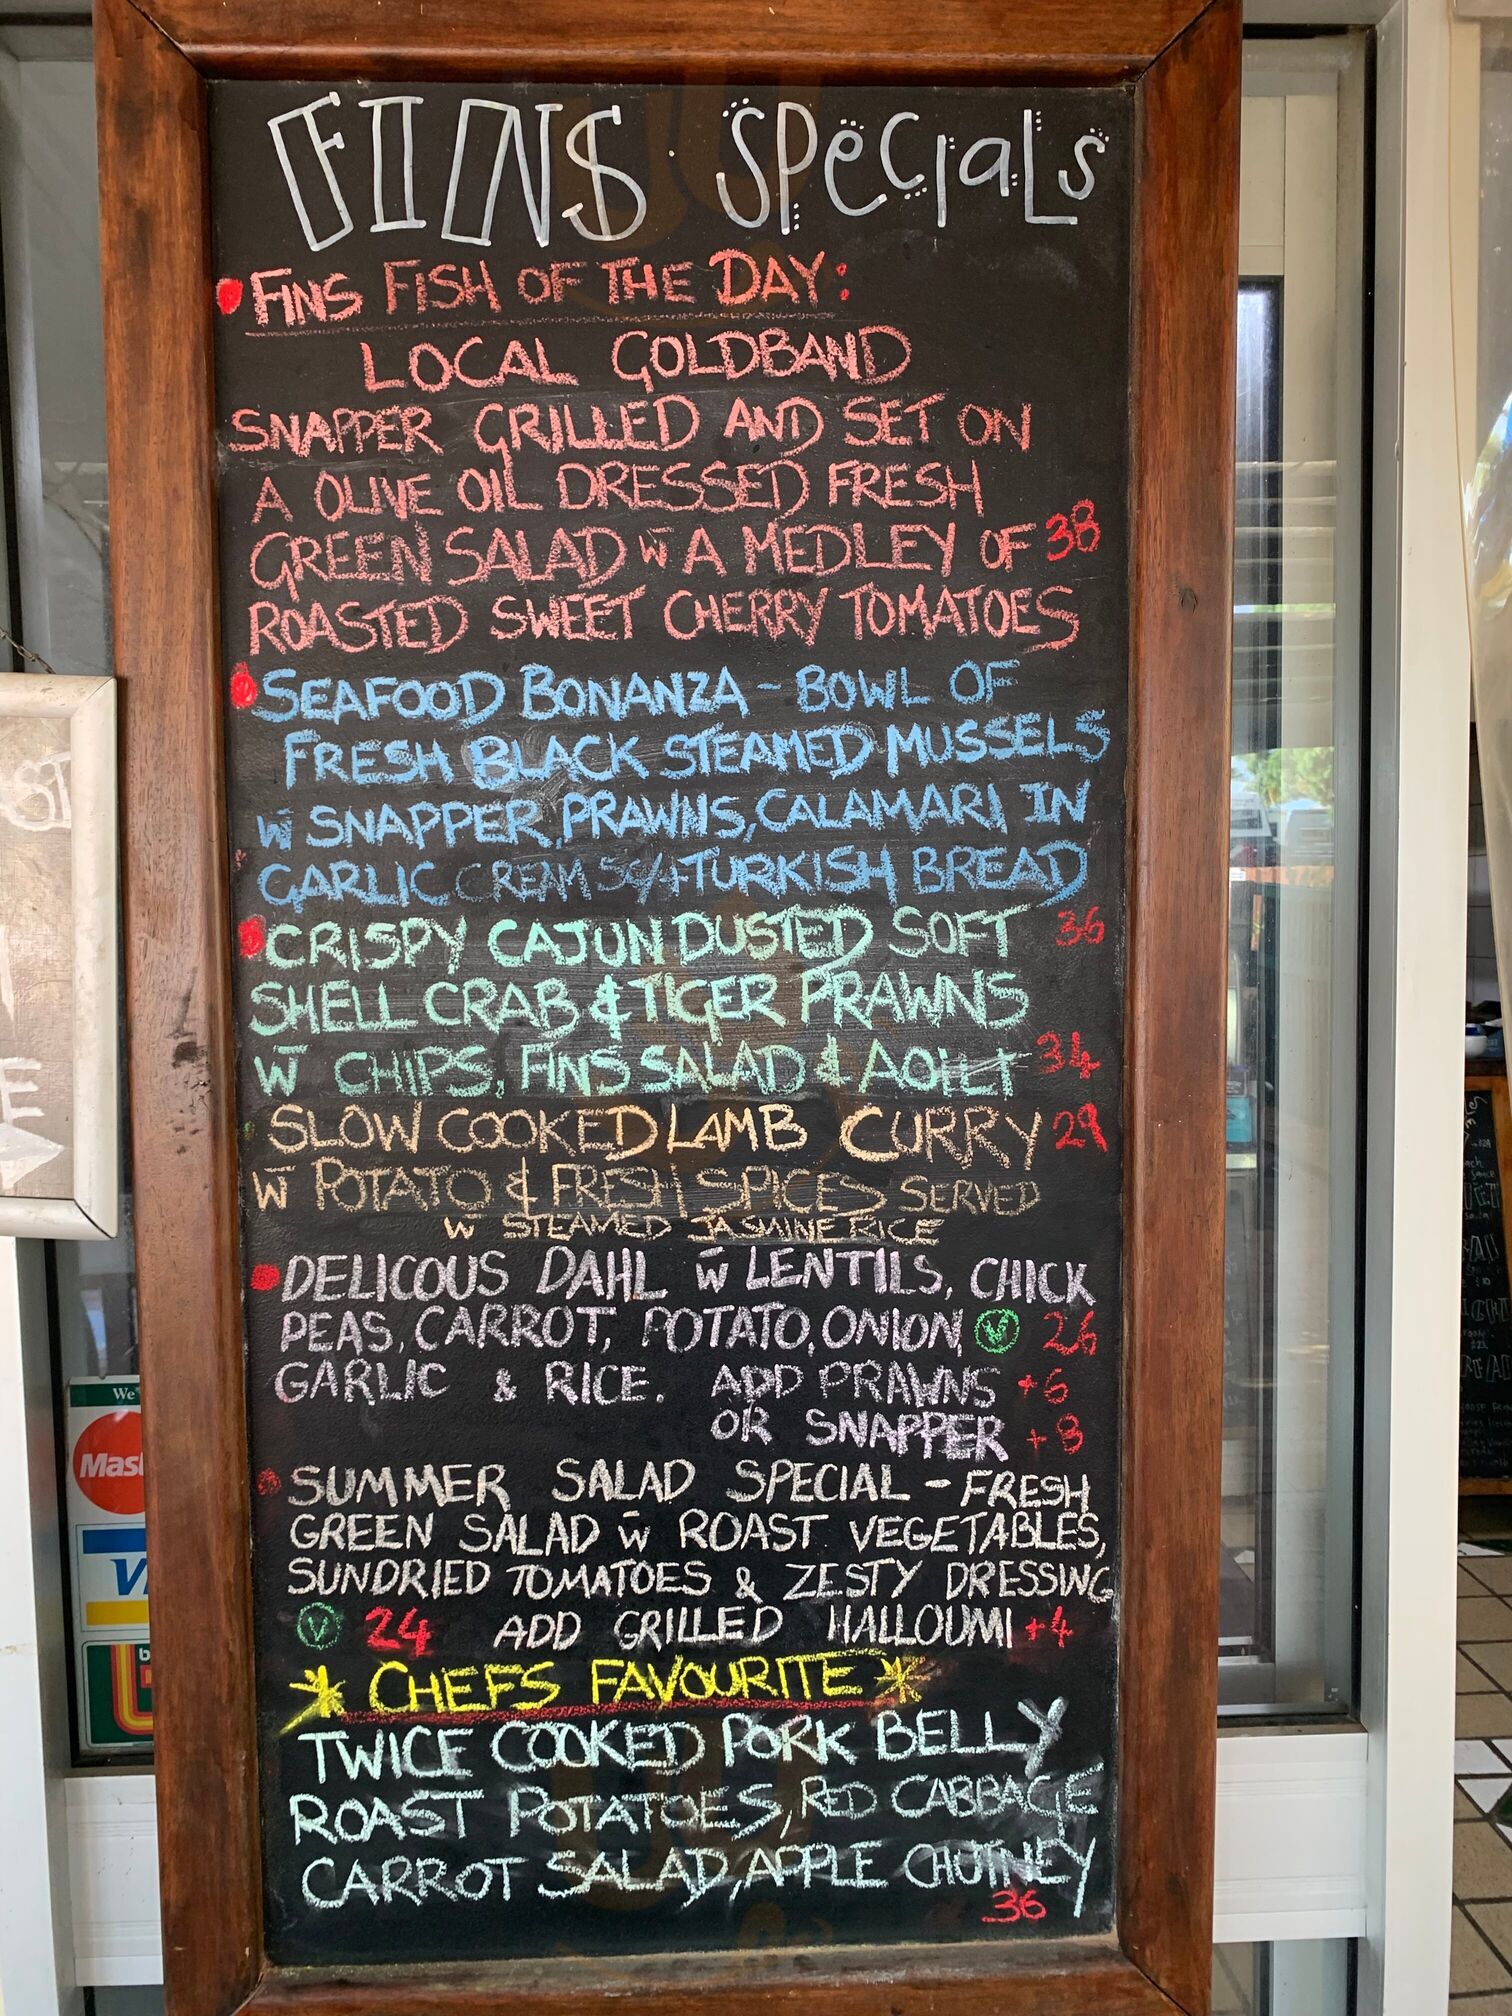 FINS Specials
FINS FISH OF THE DAY:
LOCAL GOLDBAND
SNAPPER GRILLED AND SET ON
A OLIVE OIL DRESSED FRESH
GREEN SALAD w̄ A MEDLEY OF 38
ROASTED SWEET CHERRY TOMATOES
SEAFOOD BONANZA - BOWL OF
FRESH BLACK STEAMED MUSSELS
w̄ SNAPPER, PRAWNS, CALAMARI IN
GARLIC CREAM TURKISH BREAD
CRISPY CAJUN DUSTED SOFT 36
SHELL CRAB & TIGER PRAWNS
w̄ CHIPS, FINS SALAD & 34
SLOW COOKED LAMB CURRY 29
w̄ POTATO & FRESH SPICES SERVED
w̄ STEAMED JASMINE RICE
DELICOUS DAHL w̄ LENTILS, CHICK
PEAS, CARROT, POTATO, ONION, V 26
GARLIC & RICE. ADD PRAWNS +6
OR SNAPPER +8
SUMMER SALAD SPECIAL - FRESH
GREEN SALAD w̄ ROAST VEGETABLES,
SUNDRIED TOMATOES & ZESTY DRESSING
V 24 ADD GRILLED HALLOUMI +4
* CHEFS FAVOURITE *
TWICE COOKED PORK BELLY
ROAST POTATOES, RED CABBAGE
CARROT SALAD, APPLE CHUTNEY
36
We
Mas